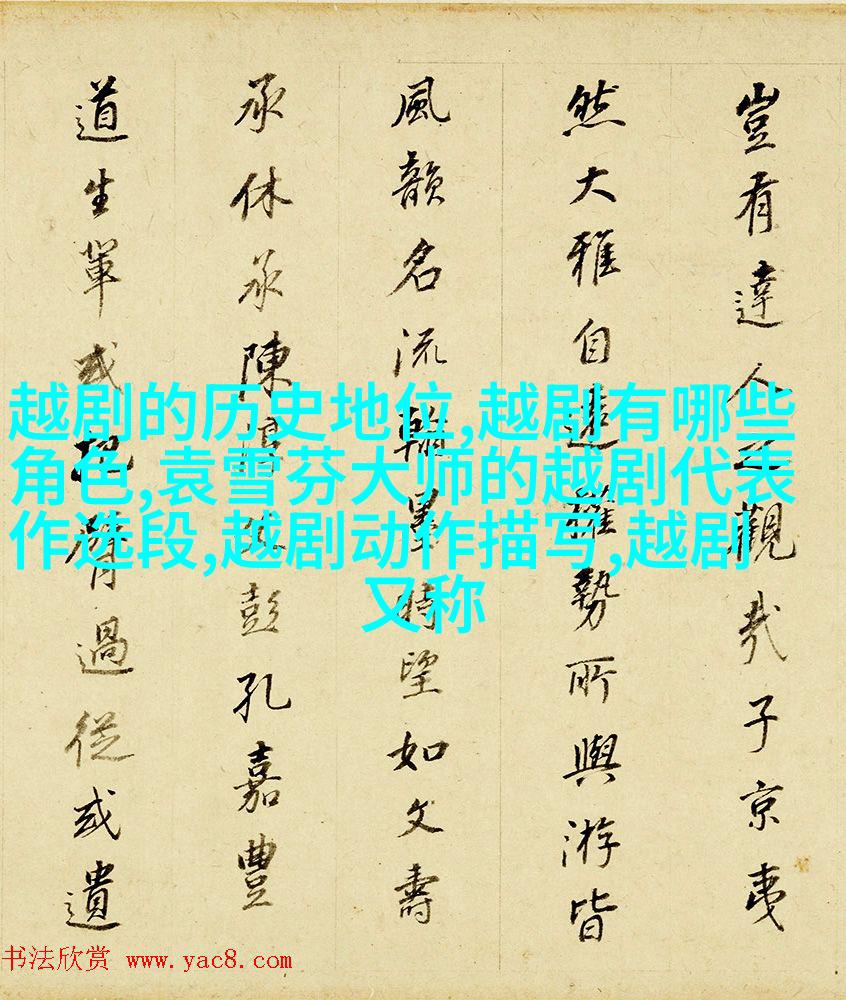 豈有達人之觀哉子京夷
然大雅自遠雖勢所與游皆
風韻名流翰墨時望如文壽
承休承陳父彭孔嘉豐
道生輩或把臂過從或遺
越剧的历史地位,越剧有哪些
角色,袁雪芬大师的越剧代表
作选段,越剧动作描写,越剧
又称
书法欣赏 www.yac8.com